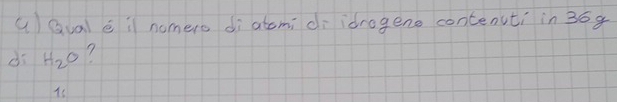 a) Qual é il numero di atomi di idrogeno contenuti in 36g
di H₂O?
1: